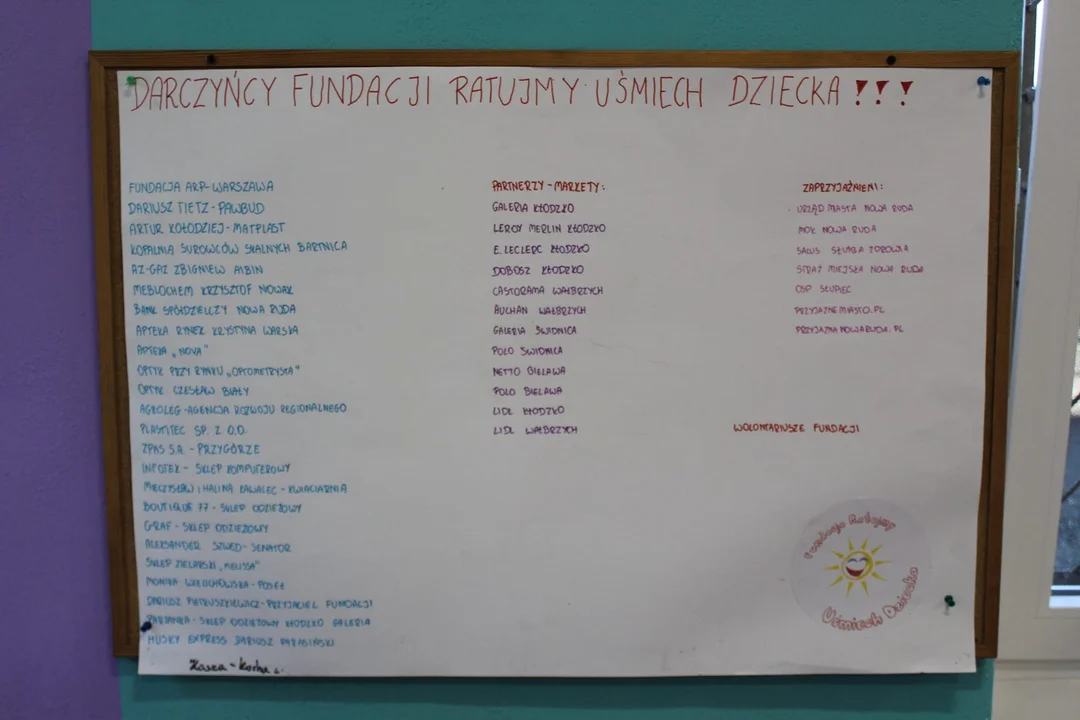 DARCZYŃCY FUNDACJI RATUJMY UŚMIECH DZIECKA !!!
FUNDACJA ARP-WARSZAWA
DARIUSZ TIETZ - PAWBUD
ARTUR KOŁODZIEJ - MATPLAST
KOPALNIA SUROWCÓW SKALNYCH BARTNICA
AZ-GAZ ZBIGNIEW AIBIN
MEBLOCHEM KRZYSZTOF NOWAK
BANK SPÓŁDZIELCZY NOWA RUDA
APTEKA RYNEK KRYSTYNA WARSKA
APTEKA „NOVA"
OPTYK PRZY RYNKU „OPTOMETRYSTA"
OPTYK CZESŁAW BIAŁY
AGROLEG - AGENCJA ROZWOJU REGIONALNEGO
PLASTITEC SP. Z O.O.
ZPAS S.A. - PRZYGÓRZE
INFOTEK - SKLEP KOMPUTEROWY
MIECZYSŁAW I HALINA KAWALEC - KWIACIARNIA
BOUTIQUE 77 - SKLEP ODZIEŻOWY
GRAF - SKLEP ODZIEŻOWY
ALEKSANDER SZWED - SENATOR
SKLEP ZIELARSKI „MELISSA"
MONIKA WIELICHOWSKA - POSEŁ
DARIUSZ PIETRUSZKIEWICZ - PRZYJACIEL FUNDACJI
PARYANKA - SKLEP ODZIEŻOWY KŁODZKO GALERIA
HUSKY EXPRESS DARIUSZ MARASIŃSKI
PARTNERZY - MARKETY:
GALERIA KŁODZKO
LEROY MERLIN KŁODZKO
E. LECLERC KŁODZKO
DOBOSZ KŁODZKO
CASTORAMA WAŁBRZYCH
AUCHAN WAŁBRZYCH
GALERIA ŚWIDNICA
POLO ŚWIDNICA
NETTO BIELAWA
POLO BIELAWA
LIDL KŁODZKO
LIDL WAŁBRZYCH
ZAPRZYJAŹNIENI:
URZĄD MIASTA NOWA RUDA
MOK NOWA RUDA
SALUS SŁUŻBA ZDROWIA
STRAŻ MIEJSKA NOWA RUDA
OSP SŁUPIEC
PRZYJAZNEMIASTO.PL
PRZYJAZNANOWARUDA.PL
WOLONTARIUSZE FUNDACJI
Fundacja Ratujmy
Uśmiech Dziecka